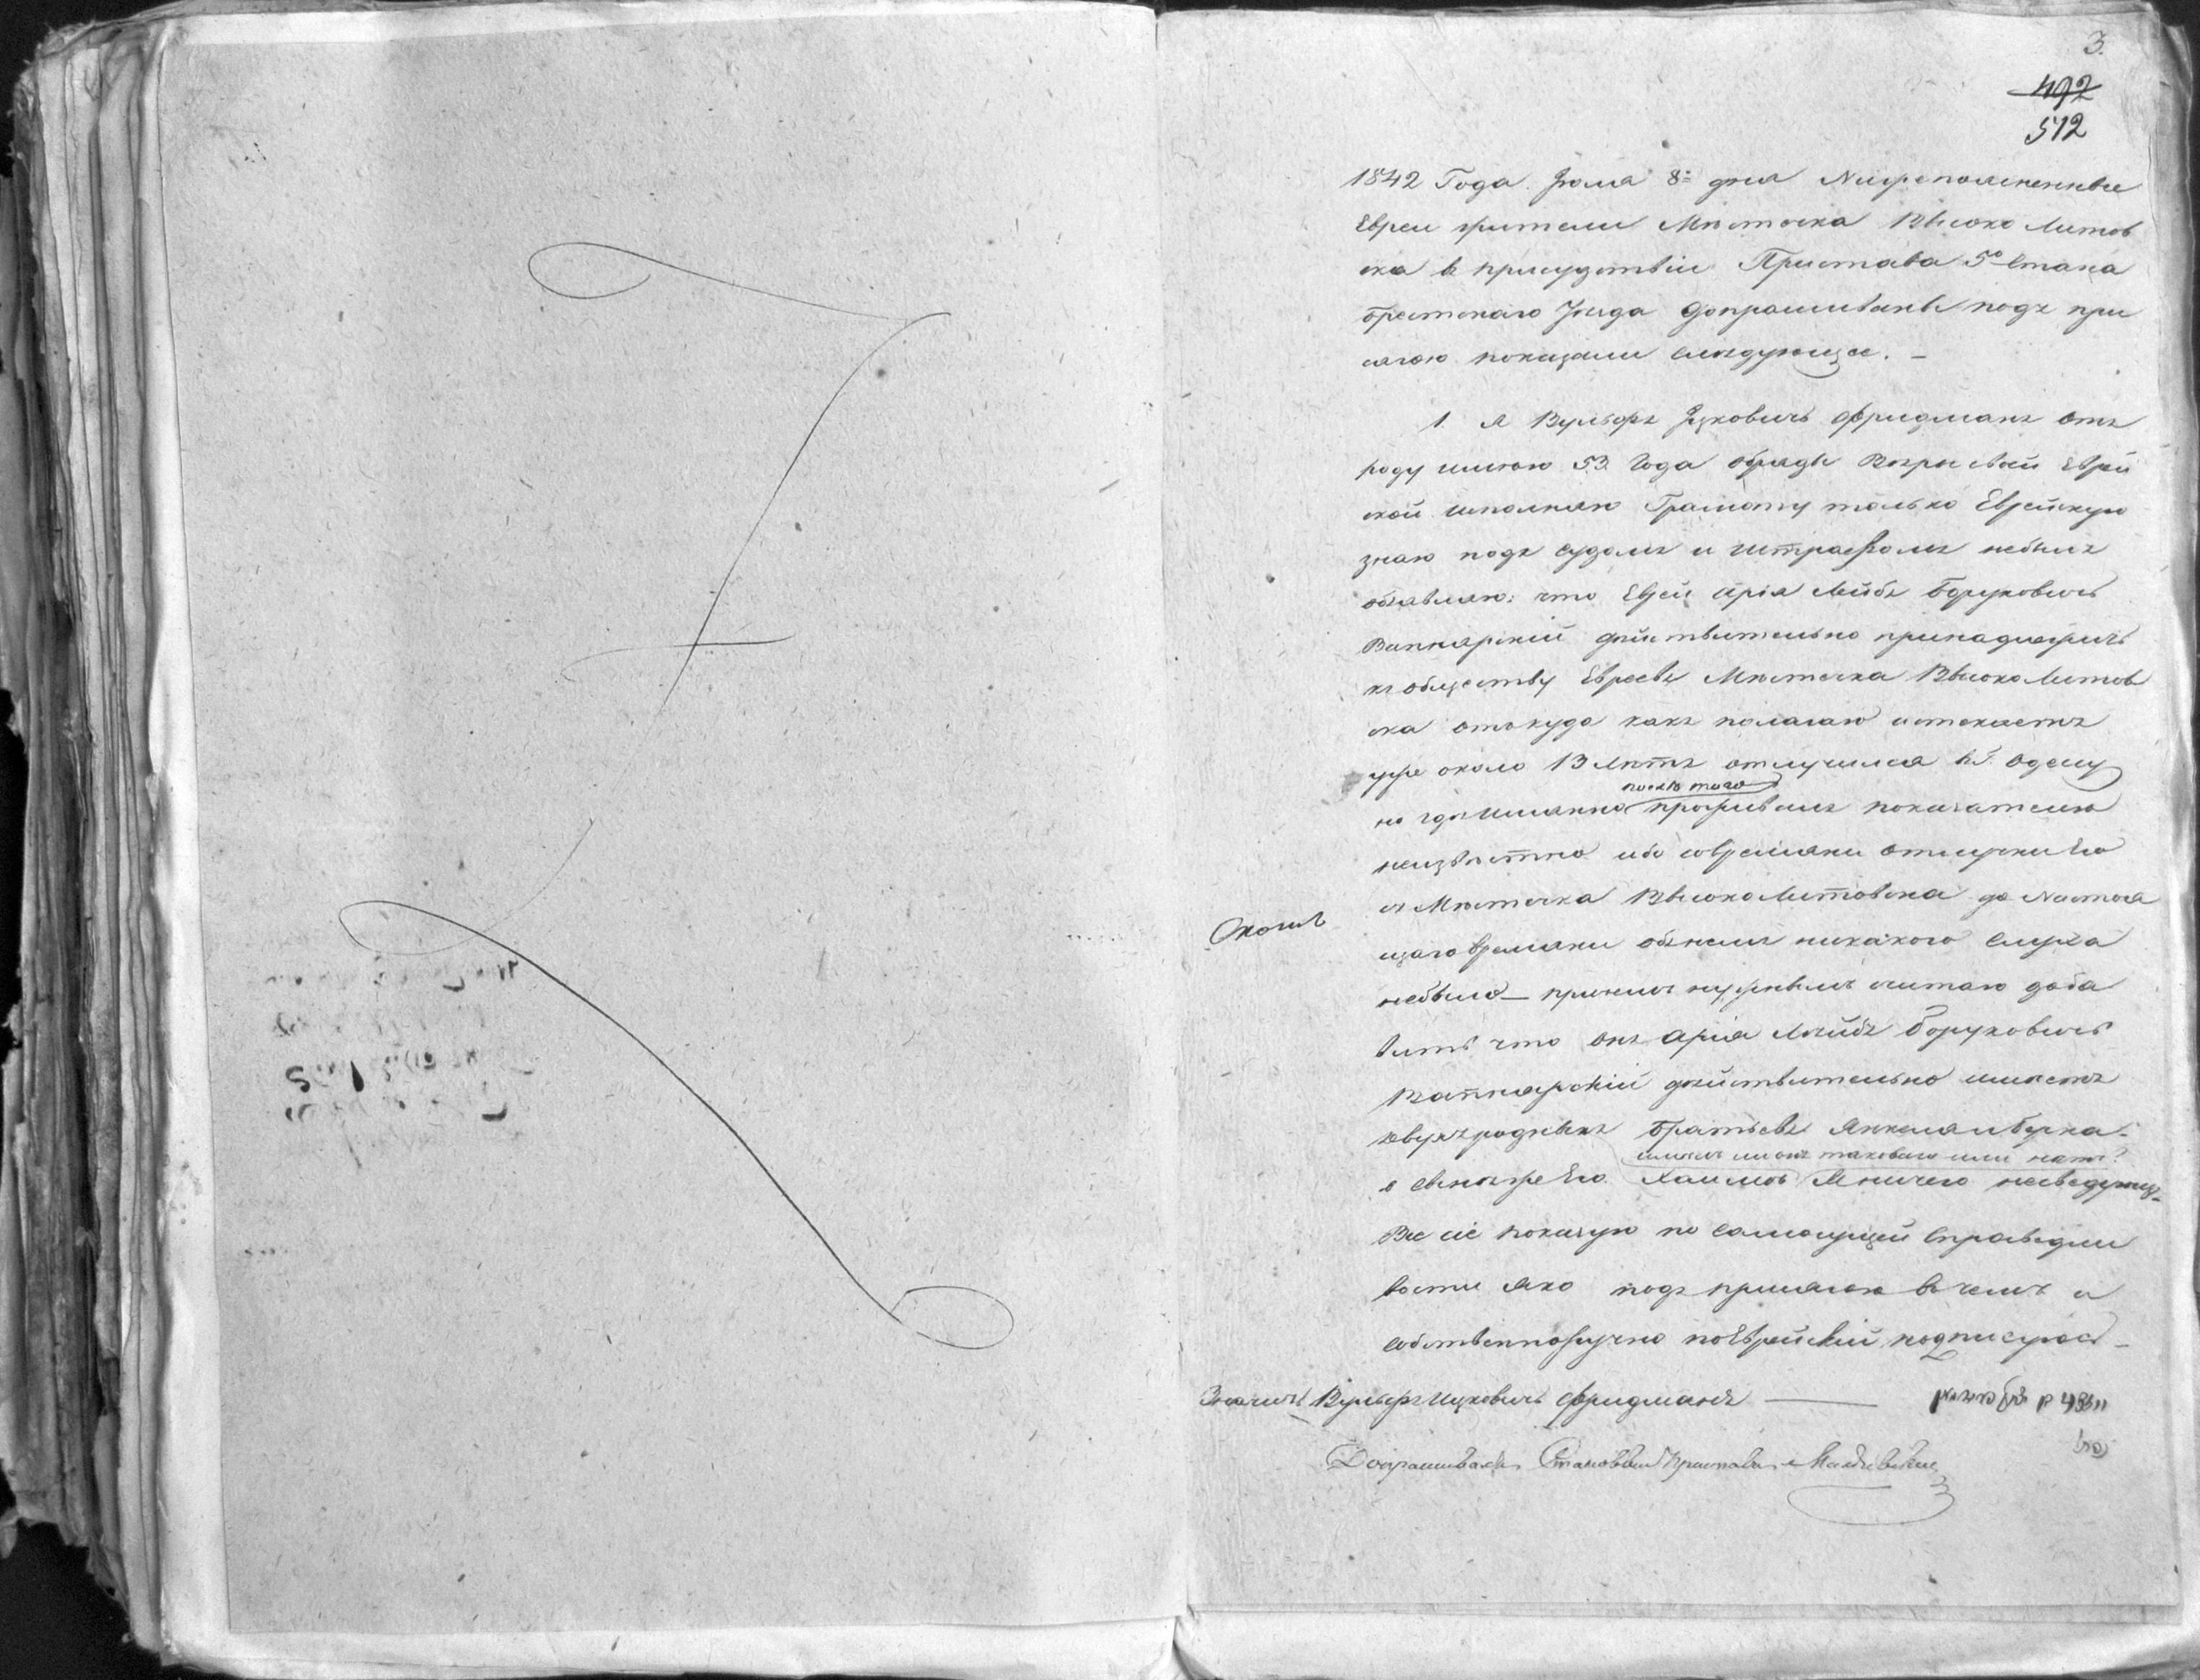 3.
492
512
1842 Года Июля 8: дня Нижепоименнные
Евреи жители Мѣстечка Высоко Литов
ска в присудствіи Пристава 5º Стана
Брестскаго Уѣзда допрашиваны подъ при
сягою показали слѣдующее. –
1. Я Вульфъ Ицковичъ Фридманъ отъ
роду имѣю 53 Года обряды Вѣры своей Еврей
ской исполняю Грамоту только Еврейскую
знаю подъ судомъ и штрафомъ небылъ
объявляю: что Еврей Арія Лейба Борухович
Вапнярский дѣйствительно принадлежитъ
къ обществу Евреевъ Мѣстечка Высоко Литов
ска откуда какъ полагаю истекаетъ
уже около 13 лѣтъ отлучился в Г. Одесу
послѣ того
но где имянно проживалъ показателю
неизвѣстно ибо со времяни отлучки Его
съ Мѣстечка Высоко Литовска до Настоя
щаго времяни объ немъ никакого слуха
небыло – причемъ нужнымъ считаю доба
вить что онъ Арія Лейба Борухович
Вапнярскій дѣйствительно имѣетъ
двухъ родныхъ Братьевъ Янкеля и Берка.
имѣлъ ли онъ таковаго или нѣтъ?
о сынѣ же Его Хаимѣ Я ничего несведущъ
Все сіе показую по самой сущей справедли
вости яко подъ присягою в чемъ и
собственноручно по Еврейскій подписуюсь –
Значитъ Вульфъ Ицковичъ Фридманъ
Допрашивалъ Становый Приставъ